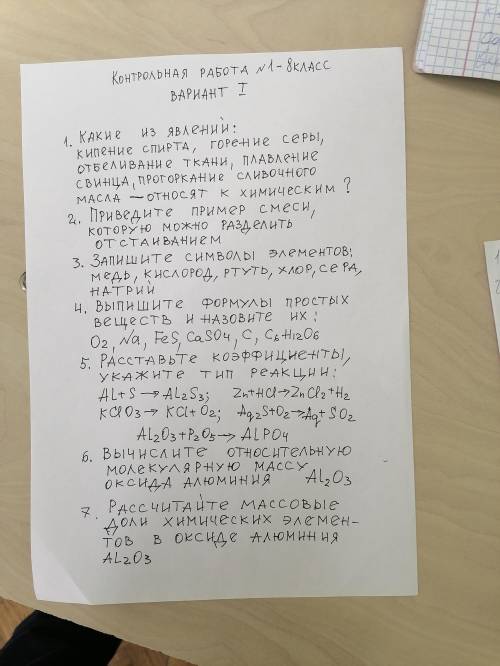 КОНТРОЛЬНАЯ РАБОТА №1-8КЛАСС
ВАРИАНТ I
1. КАКИЕ ИЗ ЯВЛЕНИЙ:
КИПЕНИЕ СПИРТА, ГОРЕНИЕ СЕРЫ,
ОТБЕЛИВАНИЕ ТКАНИ, ПЛАВЛЕНИЕ
СВИНЦА, ПРОГОРКАНИЕ СЛИВОЧНОГО
МАСЛА — ОТНОСЯТ К ХИМИЧЕСКИМ?
2. ПРИВЕДИТЕ ПРИМЕР СМЕСИ,
КОТОРУЮ МОЖНО РАЗДЕЛИТЬ
ОТСТАИВАНИЕМ
3. ЗАПИШИТЕ СИМВОЛЫ ЭЛЕМЕНТОВ:
МЕДЬ, КИСЛОРОД, РТУТЬ, ХЛОР, СЕРА,
НАТРИЙ
4. ВЫПИШИТЕ ФОРМУЛЫ ПРОСТЫХ
ВЕЩЕСТВ И НАЗОВИТЕ ИХ:
O2, Na, FeS, CaSO4, C, C6H12O6
5. РАССТАВЬТЕ КОЭФФИЦИЕНТЫ,
УКАЖИТЕ ТИП РЕАКЦИИ:
Al+S → Al2S3; Zn+HCl→ZnCl2+H2
KClO3→ KCl+O2; Ag2S+O2→Ag+SO2
Al2O3+P2O5→ALPO4
6. ВЫЧИСЛИТЕ ОТНОСИТЕЛЬНУЮ
МОЛЕКУЛЯРНУЮ МАССУ
ОКСИДА АЛЮМИНИЯ AL2O3
7. РАССЧИТАЙТЕ МАССОВЫЕ
ДОЛИ ХИМИЧЕСКИХ ЭЛЕМЕН-
ТОВ В ОКСИДЕ АЛЮМИНИЯ
AL2O3